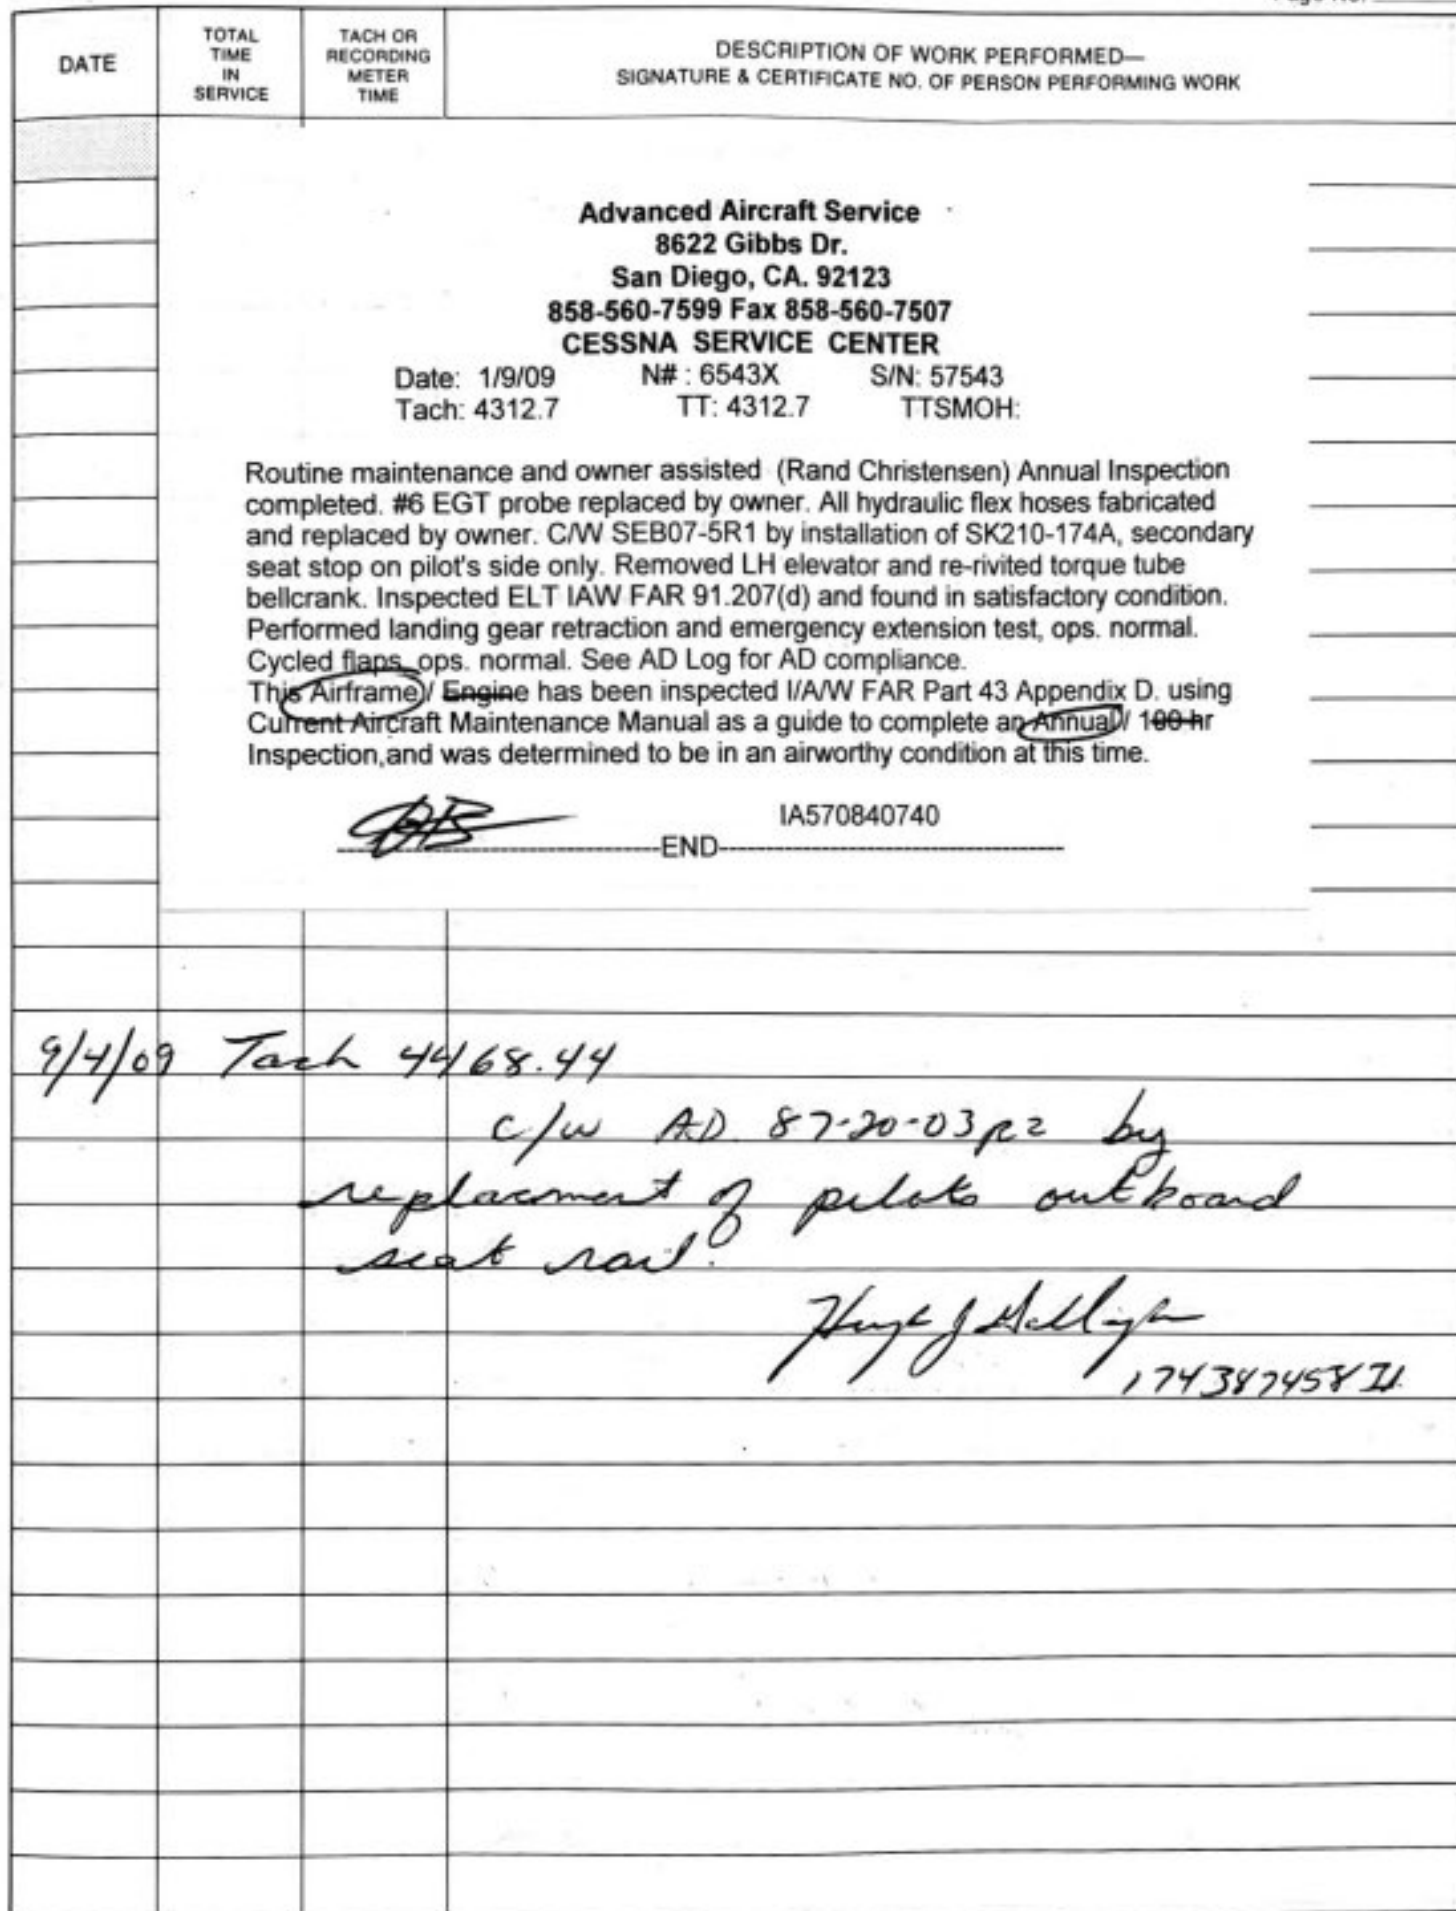 Page No.
DATE
TOTAL
TIME
IN
SERVICE
TACH OR
RECORDING
METER
TIME
DESCRIPTION OF WORK PERFORMED—
SIGNATURE & CERTIFICATE NO. OF PERSON PERFORMING WORK
Advanced Aircraft Service
8622 Gibbs Dr.
San Diego, CA. 92123
858-560-7599 Fax 858-560-7507
CESSNA SERVICE CENTER
Date: 1/9/09 N# : 6543X S/N: 57543
Tach: 4312.7 TT: 4312.7 TTSMOH:
Routine maintenance and owner assisted (Rand Christensen) Annual Inspection
completed. #6 EGT probe replaced by owner. All hydraulic flex hoses fabricated
and replaced by owner. C/W SEB07-5R1 by installation of SK210-174A, secondary
seat stop on pilot's side only. Removed LH elevator and re-rivited torque tube
bellcrank. Inspected ELT IAW FAR 91.207(d) and found in satisfactory condition.
Performed landing gear retraction and emergency extension test, ops. normal.
Cycled flaps, ops. normal. See AD Log for AD compliance.
This Airframe / Engine has been inspected I/A/W FAR Part 43 Appendix D. using
Current Aircraft Maintenance Manual as a guide to complete an Annual / 100 hr
Inspection,and was determined to be in an airworthy condition at this time.
IA570840740
END
9/4/09 Tach 4468.44
c/w AD 87-20-03R2 by
replacment of pilots outboard
seat rail.
Hugh J
174387458 IA